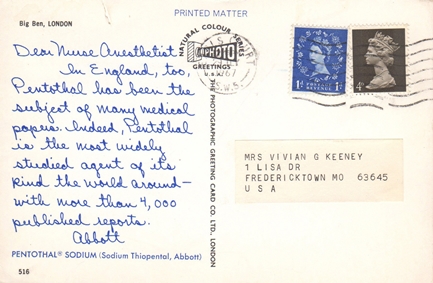 PRINTED MATTER
Big Ben, LONDON
Dear Nurse Anesthetist
In England, too,
Pentothal has been the
subject of many medical
papers. Indeed, Pentothal
is the most widely
studied agent of its
kind the world around—
with more than 4,000
published reports.
Abbott
PENTOTHAL® SODIUM (Sodium Thiopental, Abbott)
516
NATURAL COLOUR SERIES
PHOTO
GREETINGS
THE PHOTOGRAPHIC GREETING CARD CO. LTD., LONDON
1D 1D
POSTAGE
REVENUE
4D
MRS VIVIAN G KEENEY
1 LISA DR
FREDERICKTOWN MO 63645
U S A